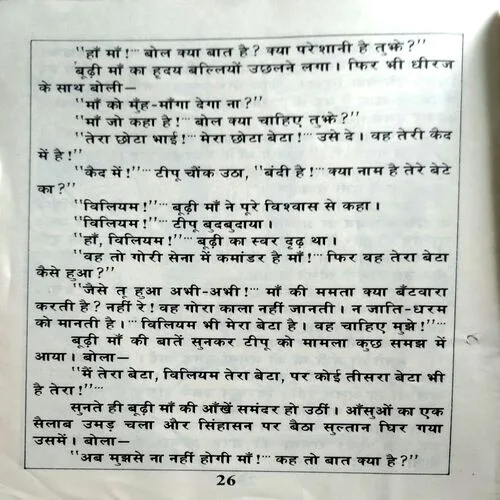 "हाँ माँ!''... बोल क्या बात है? क्या परेशानी है तुझे?"
बूढ़ी माँ का हृदय बल्लियों उछलने लगा। फिर भी धीरज
के साथ बोली—
"माँ को मुँह-माँगा देगा ना?"
"माँ जो कहा है!''... बोल क्या चाहिए तुझे?"
"तेरा छोटा भाई!''... मेरा छोटा बेटा!''... उसे दे। वह तेरी कैद
में है!''...
"कैद में!''... टीपू चौंक उठा, "बंदी है!''... क्या नाम है तेरे बेटे
का?"
"विलियम!''... बूढ़ी माँ ने पूरे विश्वास से कहा।
"विलियम!''... टीपू बुदबुदाया।
"हाँ, विलियम!''... बूढ़ी का स्वर दृढ़ था।
"वह तो गोरी सेना में कमांडर है माँ!''... फिर वह तेरा बेटा
कैसे हुआ?"
"जैसे तू हुआ अभी-अभी!''... माँ की ममता क्या बँटवारा
करती है? नहीं रे! वह गोरा काला नहीं जानती। न जाति-धरम
को मानती है।''... विलियम भी मेरा बेटा है। वह चाहिए मुझे!''...
बूढ़ी माँ की बातें सुनकर टीपू को मामला कुछ समझ में
आया। बोला—
"मैं तेरा बेटा, विलियम तेरा बेटा, पर कोई तीसरा बेटा भी
है तेरा!''...
सुनते ही बूढ़ी माँ की आँखें समंदर हो उठीं। आँसुओं का एक
सैलाब उमड़ चला और सिंहासन पर बैठा सुल्तान घिर गया
उसमें। बोला—
"अब मुझसे ना नहीं होगी माँ!''... कह तो बात क्या है?"
26